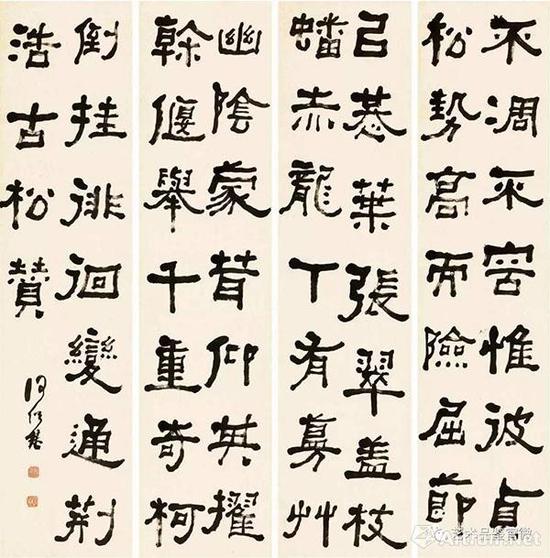 不凋不容惟彼貞
松勢高而險屈節
已恭葉張翠蓋枝
蟠赤龍丅有蔓艸
幽陰蒙茸仰其擢
榦偃舉千重奇柯
倒挂徘徊變通荊
浩古松贊
何紹基